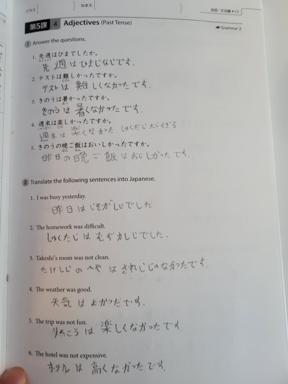 第5課 4 Adjectives (Past Tense)
Grammar 2
Answer the questions.
1. 先週はひまでしたか。
先週はひまじなです。
2. テストは難しかったですか。
テストは難しくなかったです。
3. きのうは暑かったですか。
きのうは暑くなかったです。
4. 週末は楽しかったですか。
週末は楽くなかった
5. きのうの晩ご飯はおいしかったですか。
昨日の晩ご飯はおいしかったです。
Translate the following sentences into Japanese.
1. I was busy yesterday.
昨日は
2. The homework was difficult.
しゅくだいはむずかしいでした。
3. Takeshi's room was not clean.
たけしのへやはきれいじゃなかったです。
4. The weather was good.
天気はよかったです。
5. The trip was not fun.
りょこうは楽しくなかったです。
6. The hotel was not expensive.
ホテルは高くなかったです。